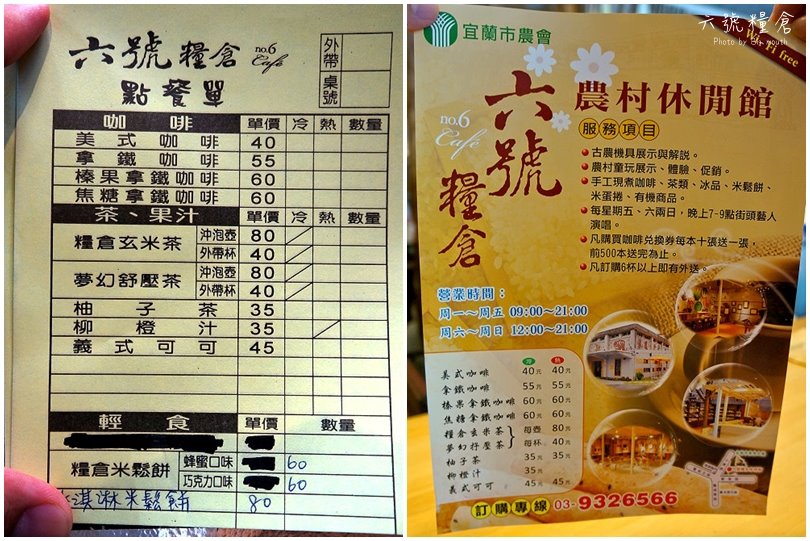 六號糧倉
no.6
Café
點餐單
外帶
桌號
咖啡 單價 冷 熱 數量
美式咖啡 40
拿鐵咖啡 55
榛果拿鐵咖啡 60
焦糖拿鐵咖啡 60
茶、果汁 單價 冷 熱 數量
糧倉玄米茶 沖泡壺 80
外帶杯 40
夢幻舒壓茶 沖泡壺 80
外帶杯 40
柚子茶 35
柳橙汁 35
義式可可 45
輕食 單價 數量
糧倉米鬆餅 蜂蜜口味 60
巧克力口味 60
淇淋米鬆餅 80
六號糧倉
宜蘭市農會
Wi-Fi free
no.6
Café
六號糧倉
農村休閒館
服務項目
古農機具展示與解說。
農村童玩展示、體驗、促銷。
手工現煮咖啡、茶類、冰品、米鬆餅、
米蛋捲、有機商品。
每星期五、六兩日，晚上7-9點街頭藝人
演唱。
凡購買咖啡兌換券每本十張送一張，
前500本送完為止。
凡訂購6杯以上即有外送。
營業時間：
周一～周五 09:00~21:00
周六～周日 12:00~21:00
冷 熱
美式咖啡 40元 40元
拿鐵咖啡 55元 55元
榛果拿鐵咖啡 60元 60元
焦糖拿鐵咖啡 60元 60元
糧倉玄米茶 每壺 80元
夢幻紓壓茶 每杯 40元
柚子茶 35元 35元
柳橙汁 35元
義式可可 45元 45元
訂購專線 03-9326566